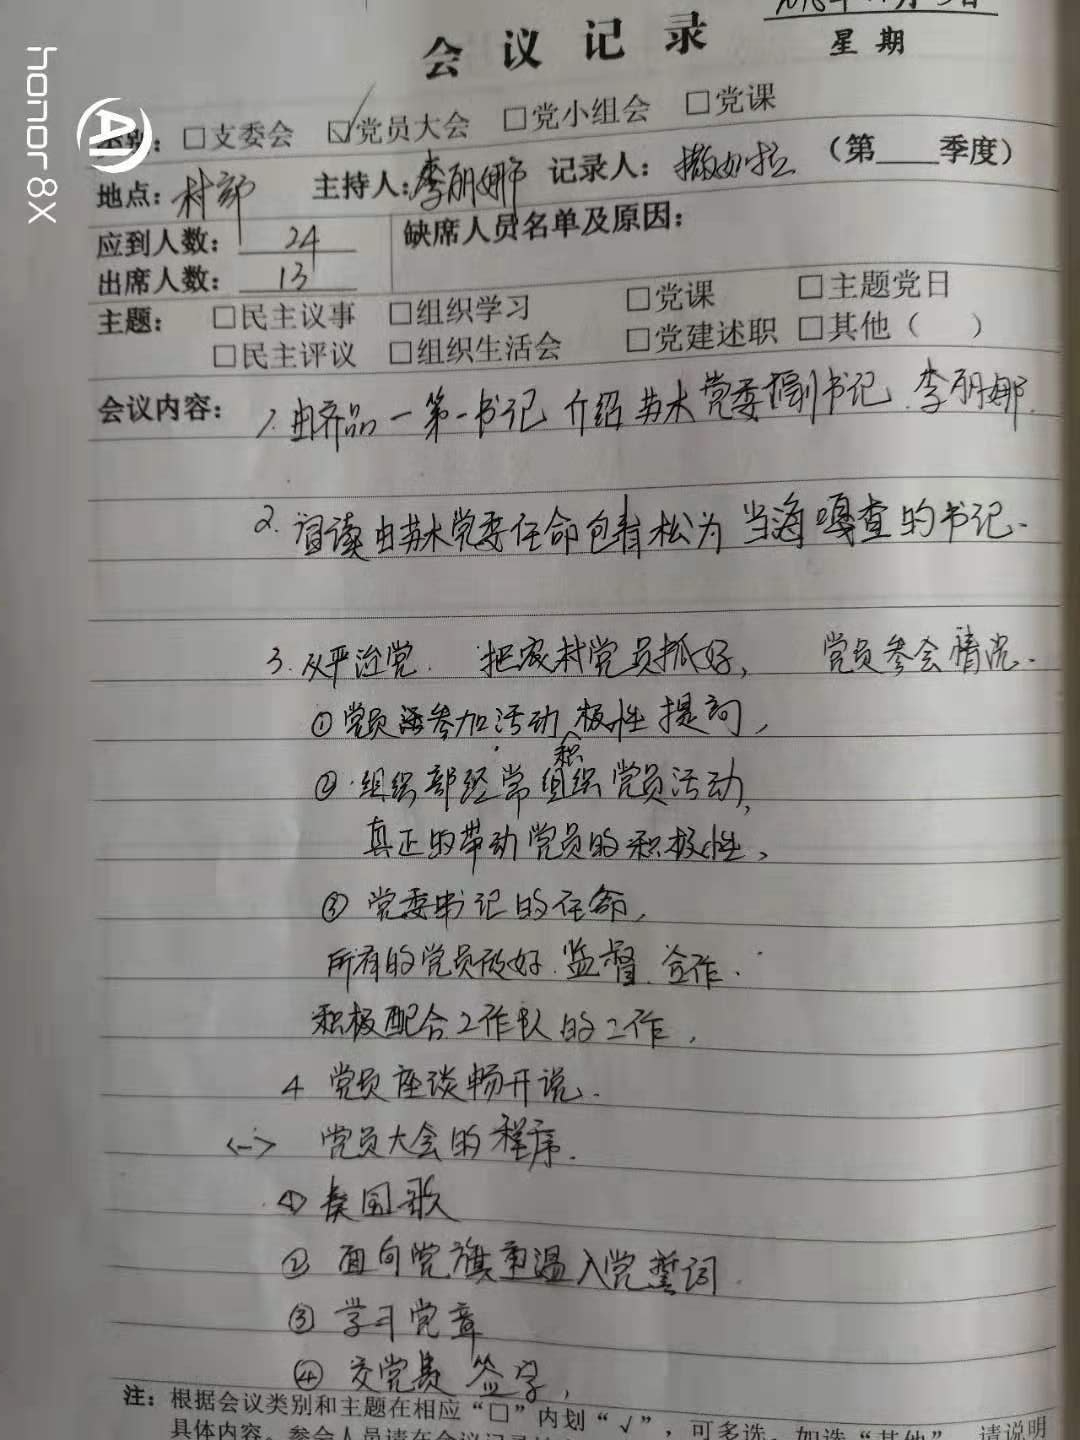 honor 8X
AI
会议记录
星期
□支委会 ☑党员大会 □党小组会 □党课
地点：村部 主持人：李丽娜 记录人： （第____季度）
应到人数：24 缺席人员名单及原因：
出席人数：13
主题： □民主议事 □组织学习 □党课 □主题党日
□民主评议 □组织生活会 □党建述职 □其他（ ）
会议内容： 1. 由齐品一第一书记 介绍 苏木党委副书记 李丽娜.
2. 宣读由苏木党委任命包青松为 当海嘎查的书记.
3. 从严治党. 把农村党员抓好， 党员参会情况.
① 党员参加活动积极性提高，
② 组织部经常组织党员活动，
真正的带动党员的积极性，
③ 党委书记的任命，
所有的党员做好 监督 合作.
积极配合工作队的工作，
4 党员座谈畅开说.
<一> 党员大会的程序.
① 奏国歌
② 面向党旗重温入党誓词
③ 学习党章
④ 交党费 签字，
注：根据会议类别和主题在相应“□”内划“√”，可多选。如选“其他”，请说明
具体内容。参会人员请在会议记录